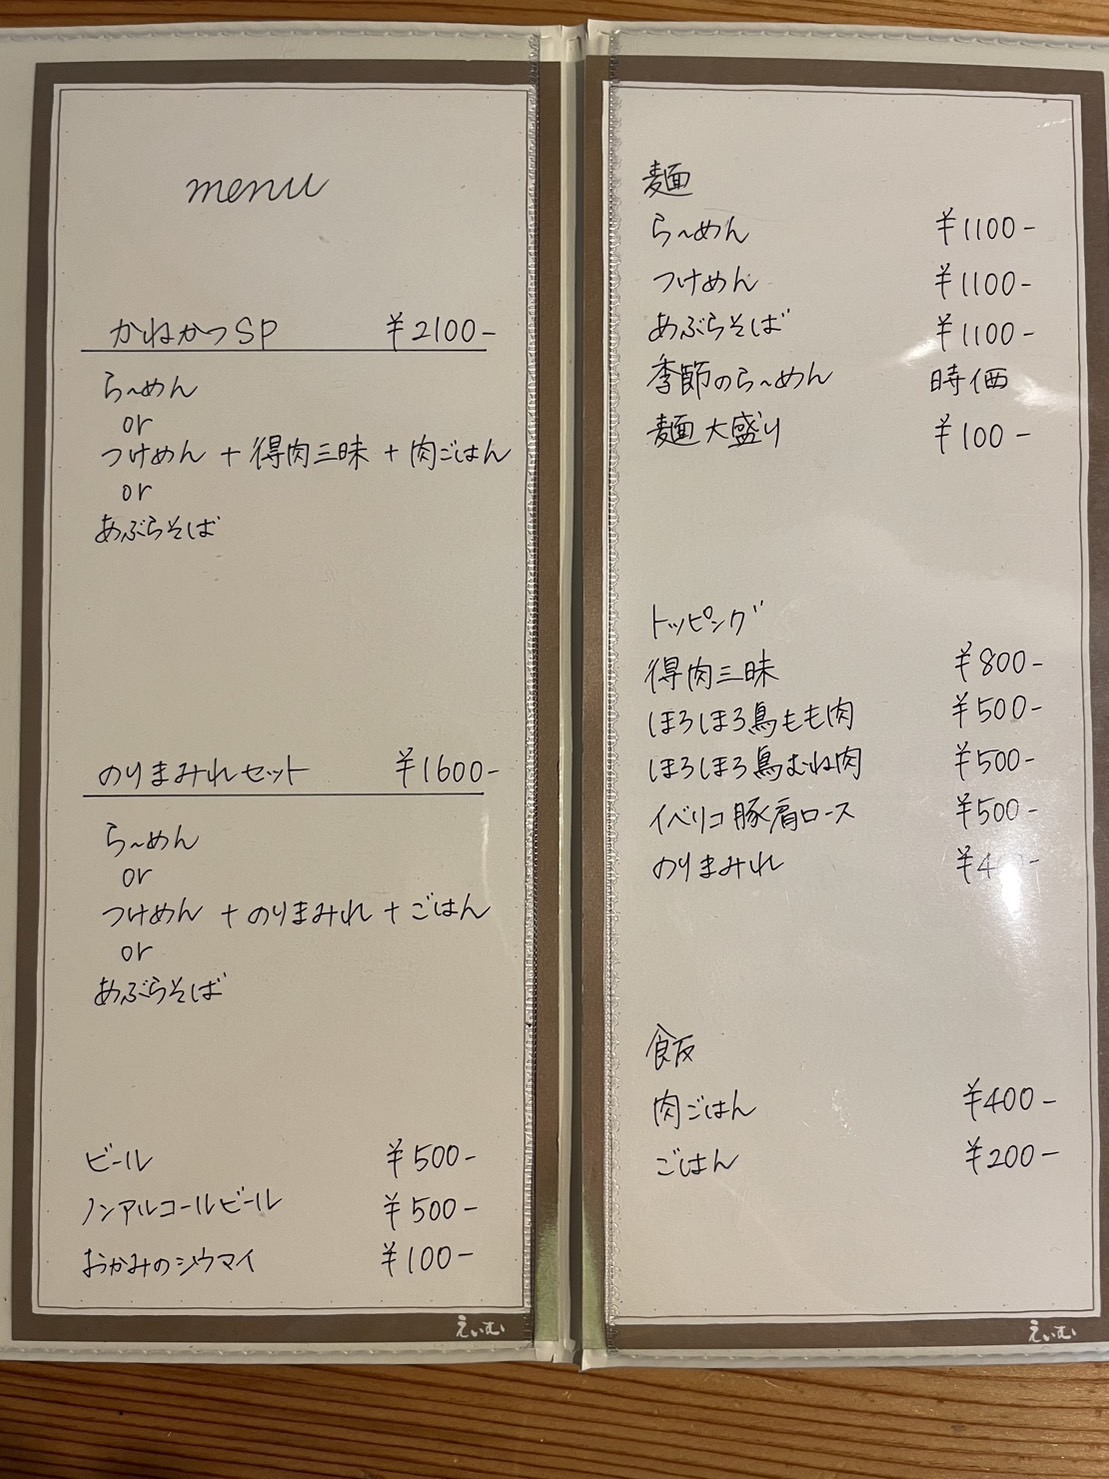 menu
かねかつSP ¥2100-
ら〜めん
or
つけめん + 得肉三昧 + 肉ごはん
or
あぶらそば
のりまみれセット ¥1600-
ら〜めん
or
つけめん + のりまみれ + ごはん
or
あぶらそば
ビール ¥500-
ノンアルコールビール ¥500-
おかみのシウマイ ¥100-
えいむ
麺
ら〜めん ¥1100-
つけめん ¥1100-
あぶらそば ¥1100-
季節のら〜めん 時価
麺大盛り ¥100-
トッピング
得肉三昧 ¥800-
ほろほろ鳥もも肉 ¥500-
ほろほろ鳥むね肉 ¥500-
イベリコ豚肩ロース ¥500-
のりまみれ
飯
肉ごはん ¥400-
ごはん ¥200-
えいむ